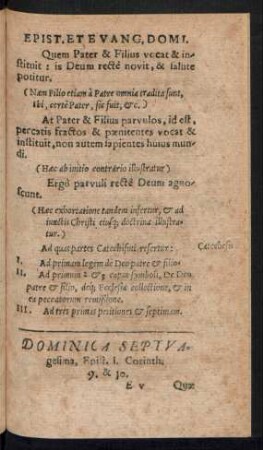 EPIST. ET EVANG, DOMI.
Quem Pater & Filius vocat & in-
stituit: is Deum rectè novit, & salute
potitur.
(Nam Filio etiam à Patre omnia tradita sunt,
ibi, certè Pater, sic fuit, &c.)
At Pater & Filius parvulos, id est,
peccatis fractos & pœnitentes vocat &
instituit, non autem sapientes huius mun-
di.
(Hæc ab initio contrario illustratur)
Ergò parvuli rectè Deum agno-
scunt.
(Hæc exhortatione tandem infertur, & ad
iunctis Christi eiusq; doctrinæ illustra-
tur.)
Ad quas partes Catechismi refertur:
Catechesis
I. Ad primam legem de Deo patre & filio.
II. Ad primum 2 & 3 caput symboli, De Deo
patre & filio, deq; Ecclesiæ collectione, & in
ea peccatorum remissione.
III. Ad tres primas petitiones & septimam.
DOMINICA SEPTVA-
gesima, Epist. I. Corinth.
9. & 10.
E v
Quæ